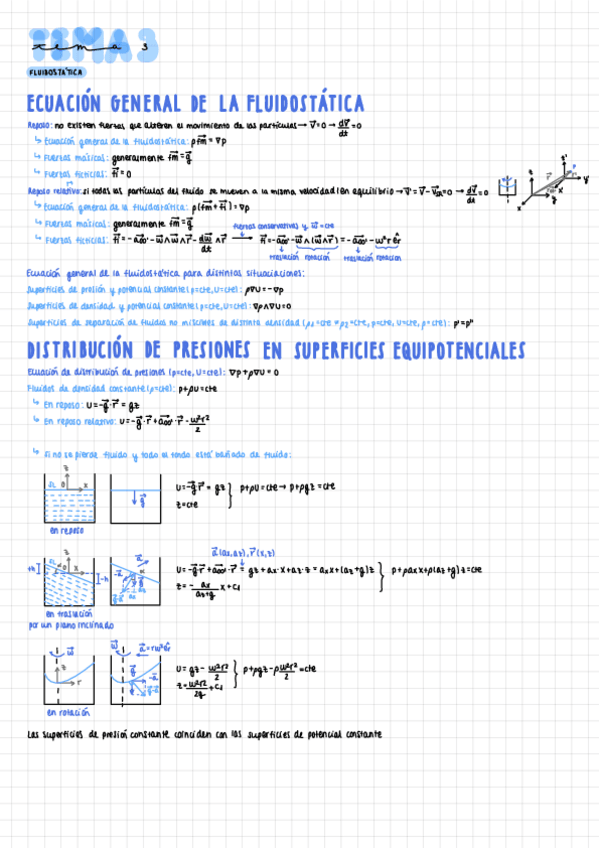 TEMA 3
tema 3
FLUIDOSTÁTICA
ECUACIÓN GENERAL DE LA FLUIDOSTÁTICA
Reposo: no existen fuerzas que alteren el movimiento de las partículas → v⃗ = 0 → dv⃗/dt = 0
↳ Ecuación general de la fluidostática: ρf⃗m = ∇p
↳ Fuerzas másicas: generalmente f⃗m = g⃗
↳ Fuerzas ficticias: f⃗i = 0
Reposo relativo: si todas las partículas del fluido se mueven a la misma velocidad (en equilibrio) → v⃗' = v⃗ - v⃗SR = 0 → dv⃗/dt = 0
↳ Ecuación general de la fluidostática: ρ(f⃗m + f⃗i) = ∇p
↳ Fuerzas másicas: generalmente f⃗m = g⃗
fuerzas conservativas y ω⃗ = cte
↳ Fuerzas ficticias: f⃗i = -a⃗oo' - ω⃗∧ω⃗∧r⃗ - dω⃗/dt ∧r⃗ → f⃗i = -a⃗oo' - ω⃗∧(ω⃗∧r⃗) = -a⃗oo' - ω²r êr
traslación rotación traslación rotación
Ecuación general de la fluidostática para distintas situaciones:
Superficies de presión y potencial constante (p=cte, U=cte): ρ∇U = -∇p
Superficies de densidad y potencial constante (ρ=cte, U=cte): ∇ρ∧∇U = 0
Superficies de separación de fluidos no miscibles de distinta densidad (ρ1=cte ≠ ρ2=cte, p=cte, U=cte, ρ=cte): p' = p''
DISTRIBUCIÓN DE PRESIONES EN SUPERFICIES EQUIPOTENCIALES
Ecuación de distribución de presiones (p=cte, U=cte): ∇p + ρ∇U = 0
Fluidos de densidad constante (ρ=cte): p + ρU = cte
↳ En reposo: U = -g⃗·r⃗ = gz
↳ En reposo relativo: U = -g⃗·r⃗ + a⃗oo'·r⃗ - ω²r²/2
↳ Si no se pierde fluido y todo el fondo está bañado de fluido:
z
SL 0 x
g⃗
U = -g⃗·r⃗ = gz } p + ρU = cte → p + ρgz = cte
z = cte
en reposo
a⃗(ax,az), r⃗(x,z)
U = -g⃗·r⃗ + a⃗oo'·r⃗ = gz + ax·x + az·z = axx + (az+g)z } p + ρaxx + ρ(az+g)z = cte
z = - ax/(az+g) x + c1
+h -h
en traslación
por un plano inclinado
ω⃗ ω⃗ a⃗ = rω²êr
z r g⃗ -a⃗ g⃗-a⃗
U = gz - ω²r²/2 } p + ρgz - ρω²r²/2 = cte
z = ω²r²/2g + c1
en rotación
Las superficies de presión constante coinciden con las superficies de potencial constante